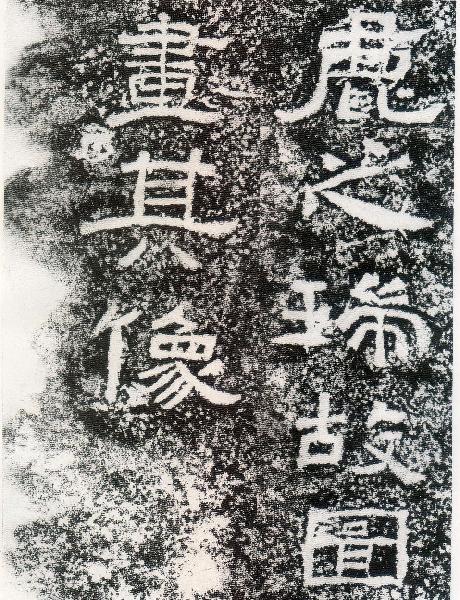 鹿之瑞故圖
畫其像